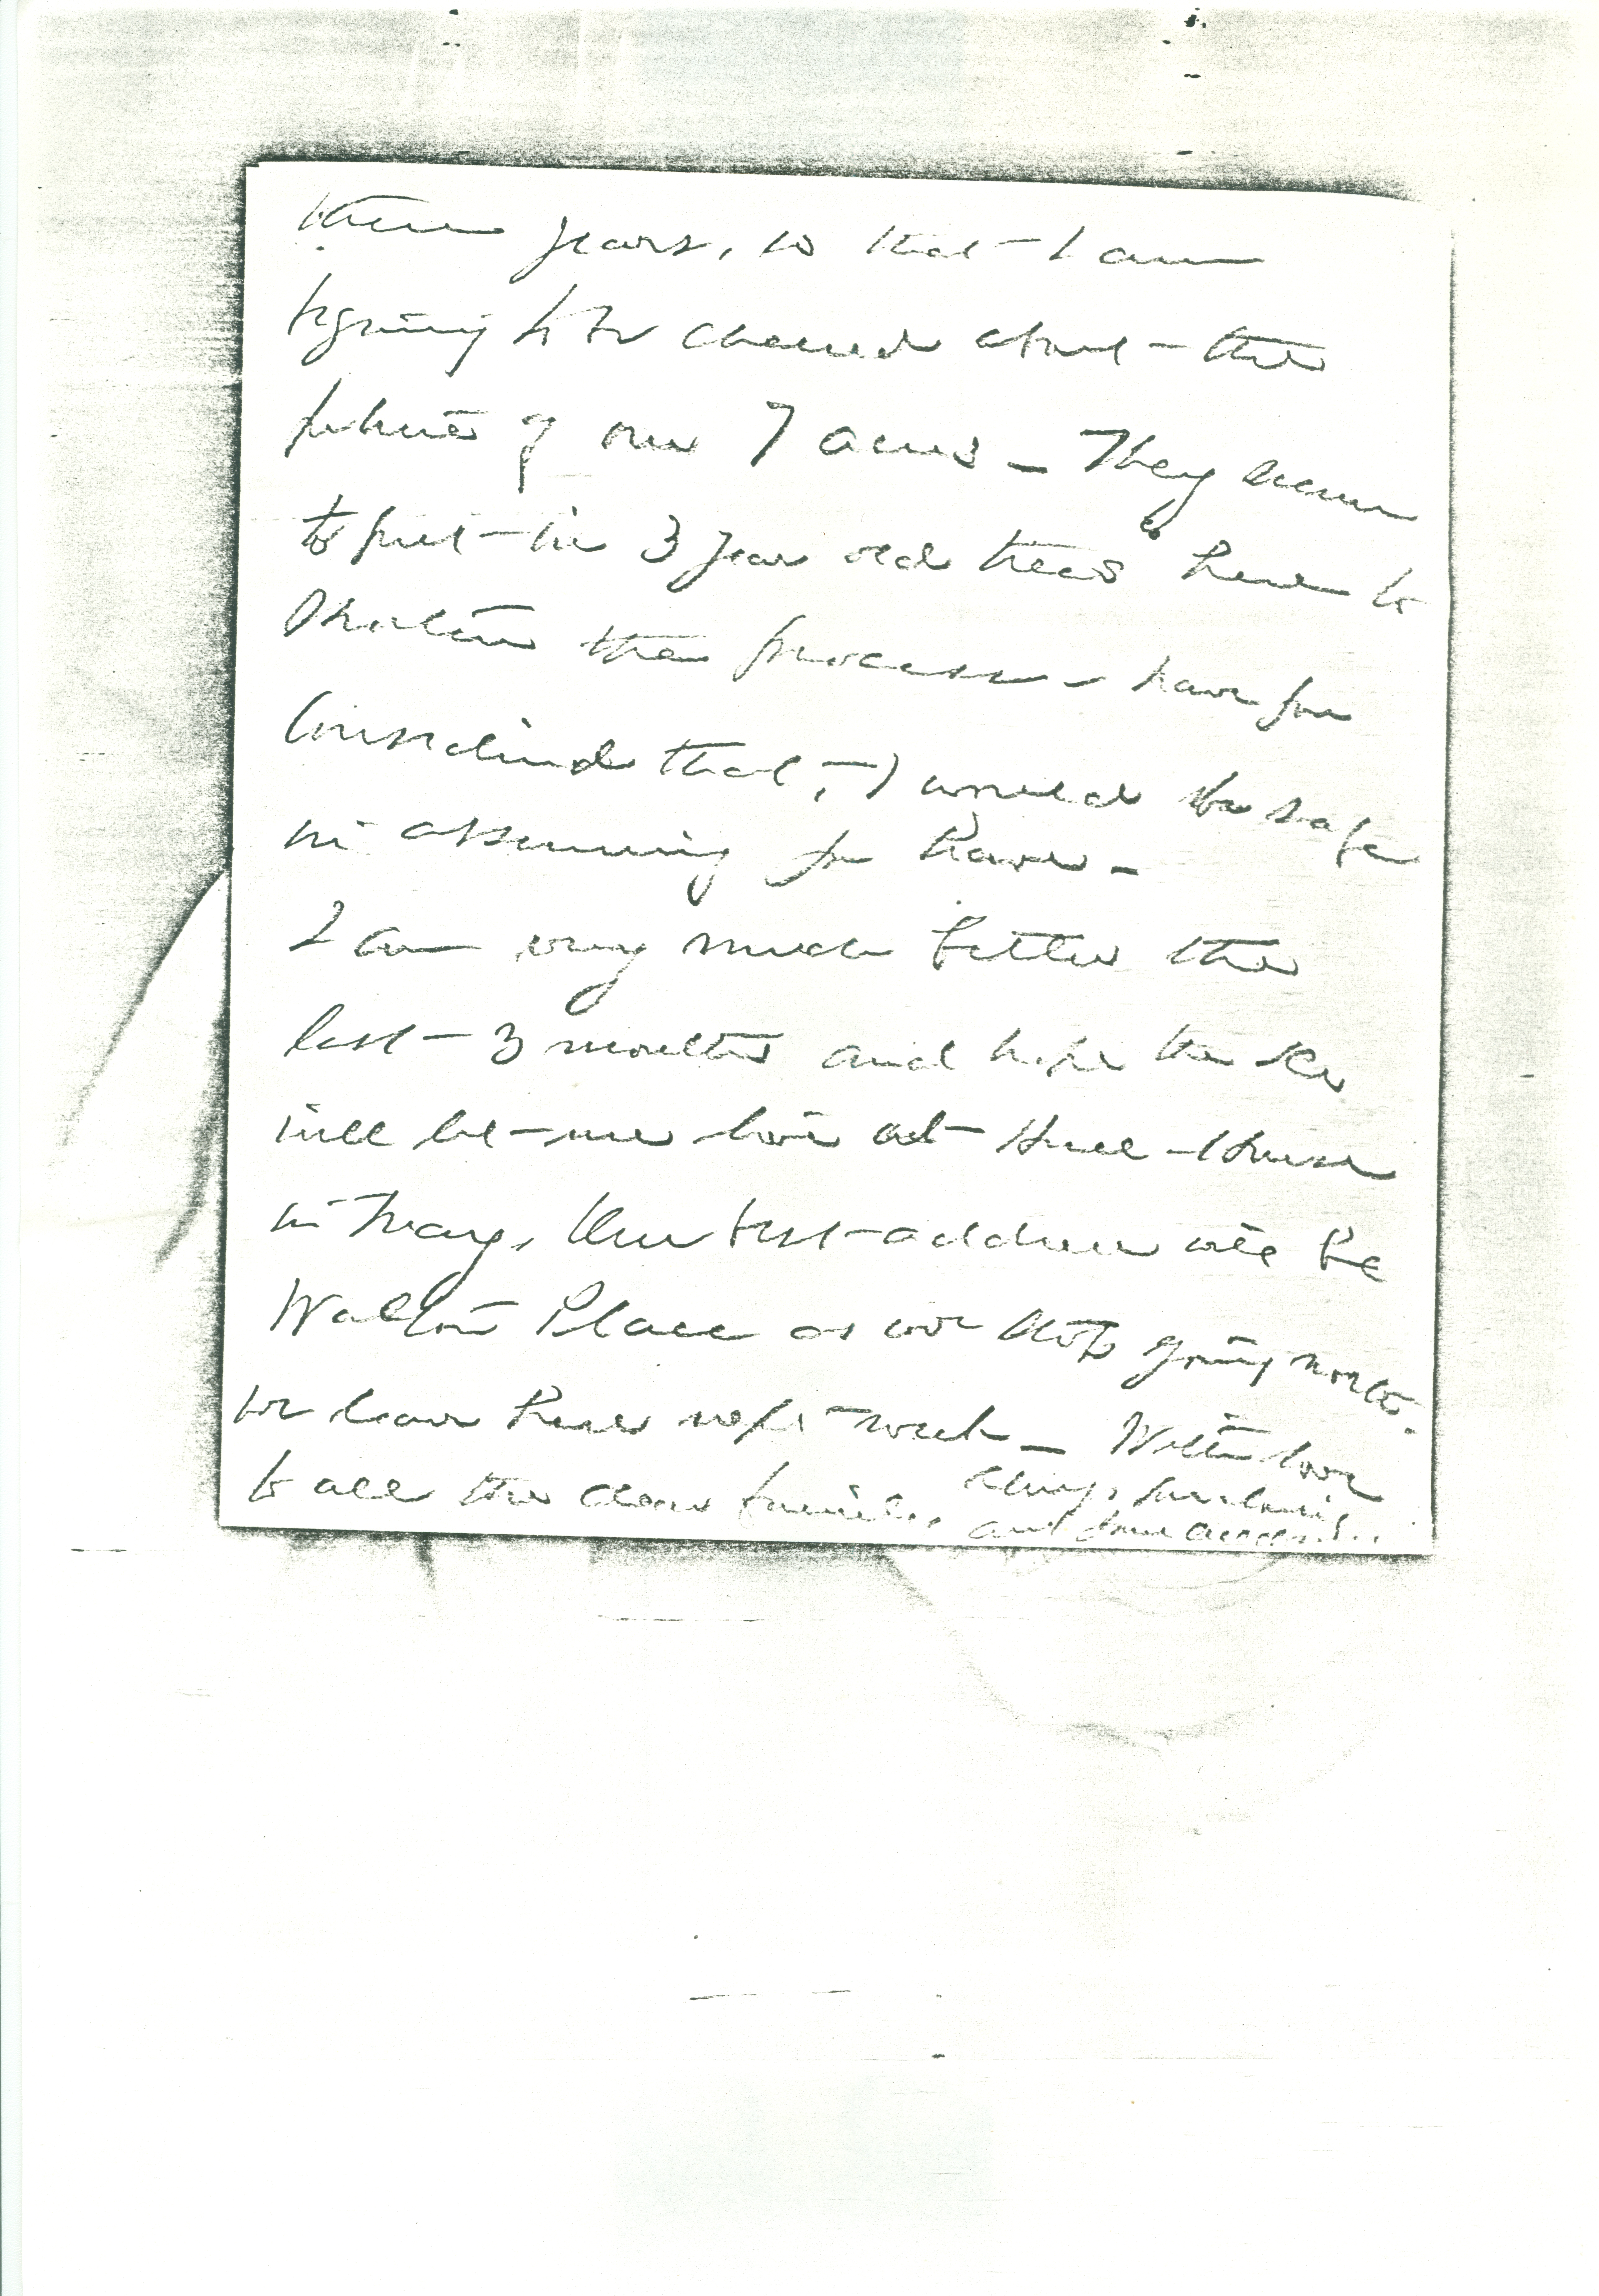 three years, so that I am
begining to be cheered about the
future of our 7 acres – They seem
to put in 3 year old trees here to
shorten the process – have you
considered that, I would be safe
in assuming you have –
I am very much better the
last 3 months and hope the Drs
will let me live at Hull-House
in May. Our best address will be
Walton Place as we stop going north.
We leave here next week – With love
to all the dear family,
always, devotedly